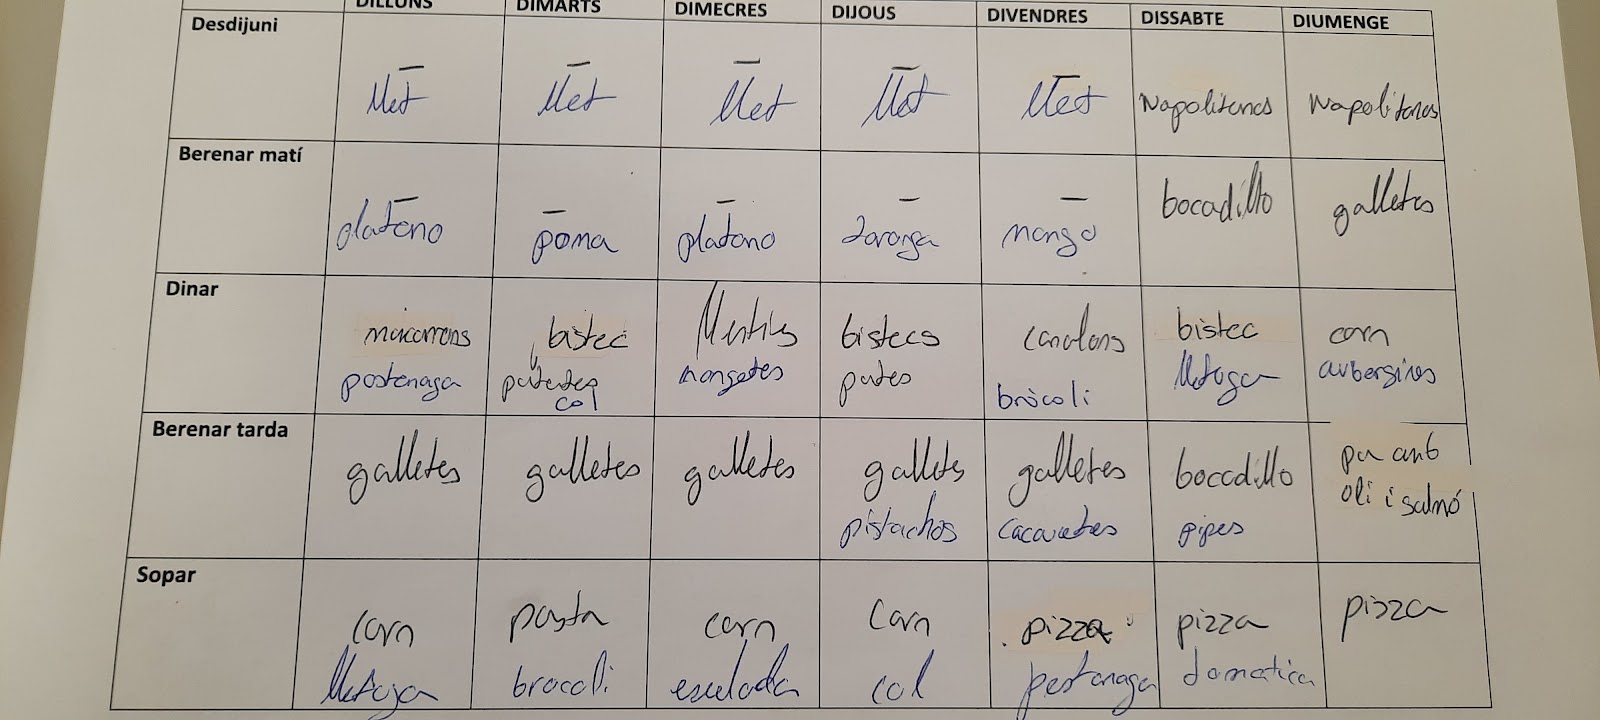 DILLUNS DIMARTS DIMECRES DIJOUS DIVENDRES DISSABTE DIUMENGE
Desdijuni
— — — — —
llet llet llet llet llet Napolitanes Napolitanes
Berenar matí
— — — — — bocadillo galletes
platano poma platano taronja mango
Dinar
macarrons bistec llenties bistecs canalons bistec carn
pastenaga patates mongetes pates bròcoli lletuga aubergines
col
Berenar tarda
galletes galletes galletes gallets galletes bocadillo pa amb
pistachos cacauetes pipes oli i salmó
Sopar
carn pasta carn carn pizza pizza pizza
lletuga brocoli col pestanaga domatica